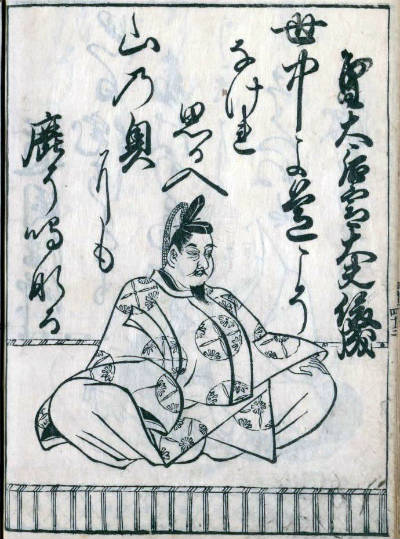 皇太后宮大夫俊成
世中よ道こそ
なけれ
思ひ入
山乃奥
にも
鹿そ鳴なる